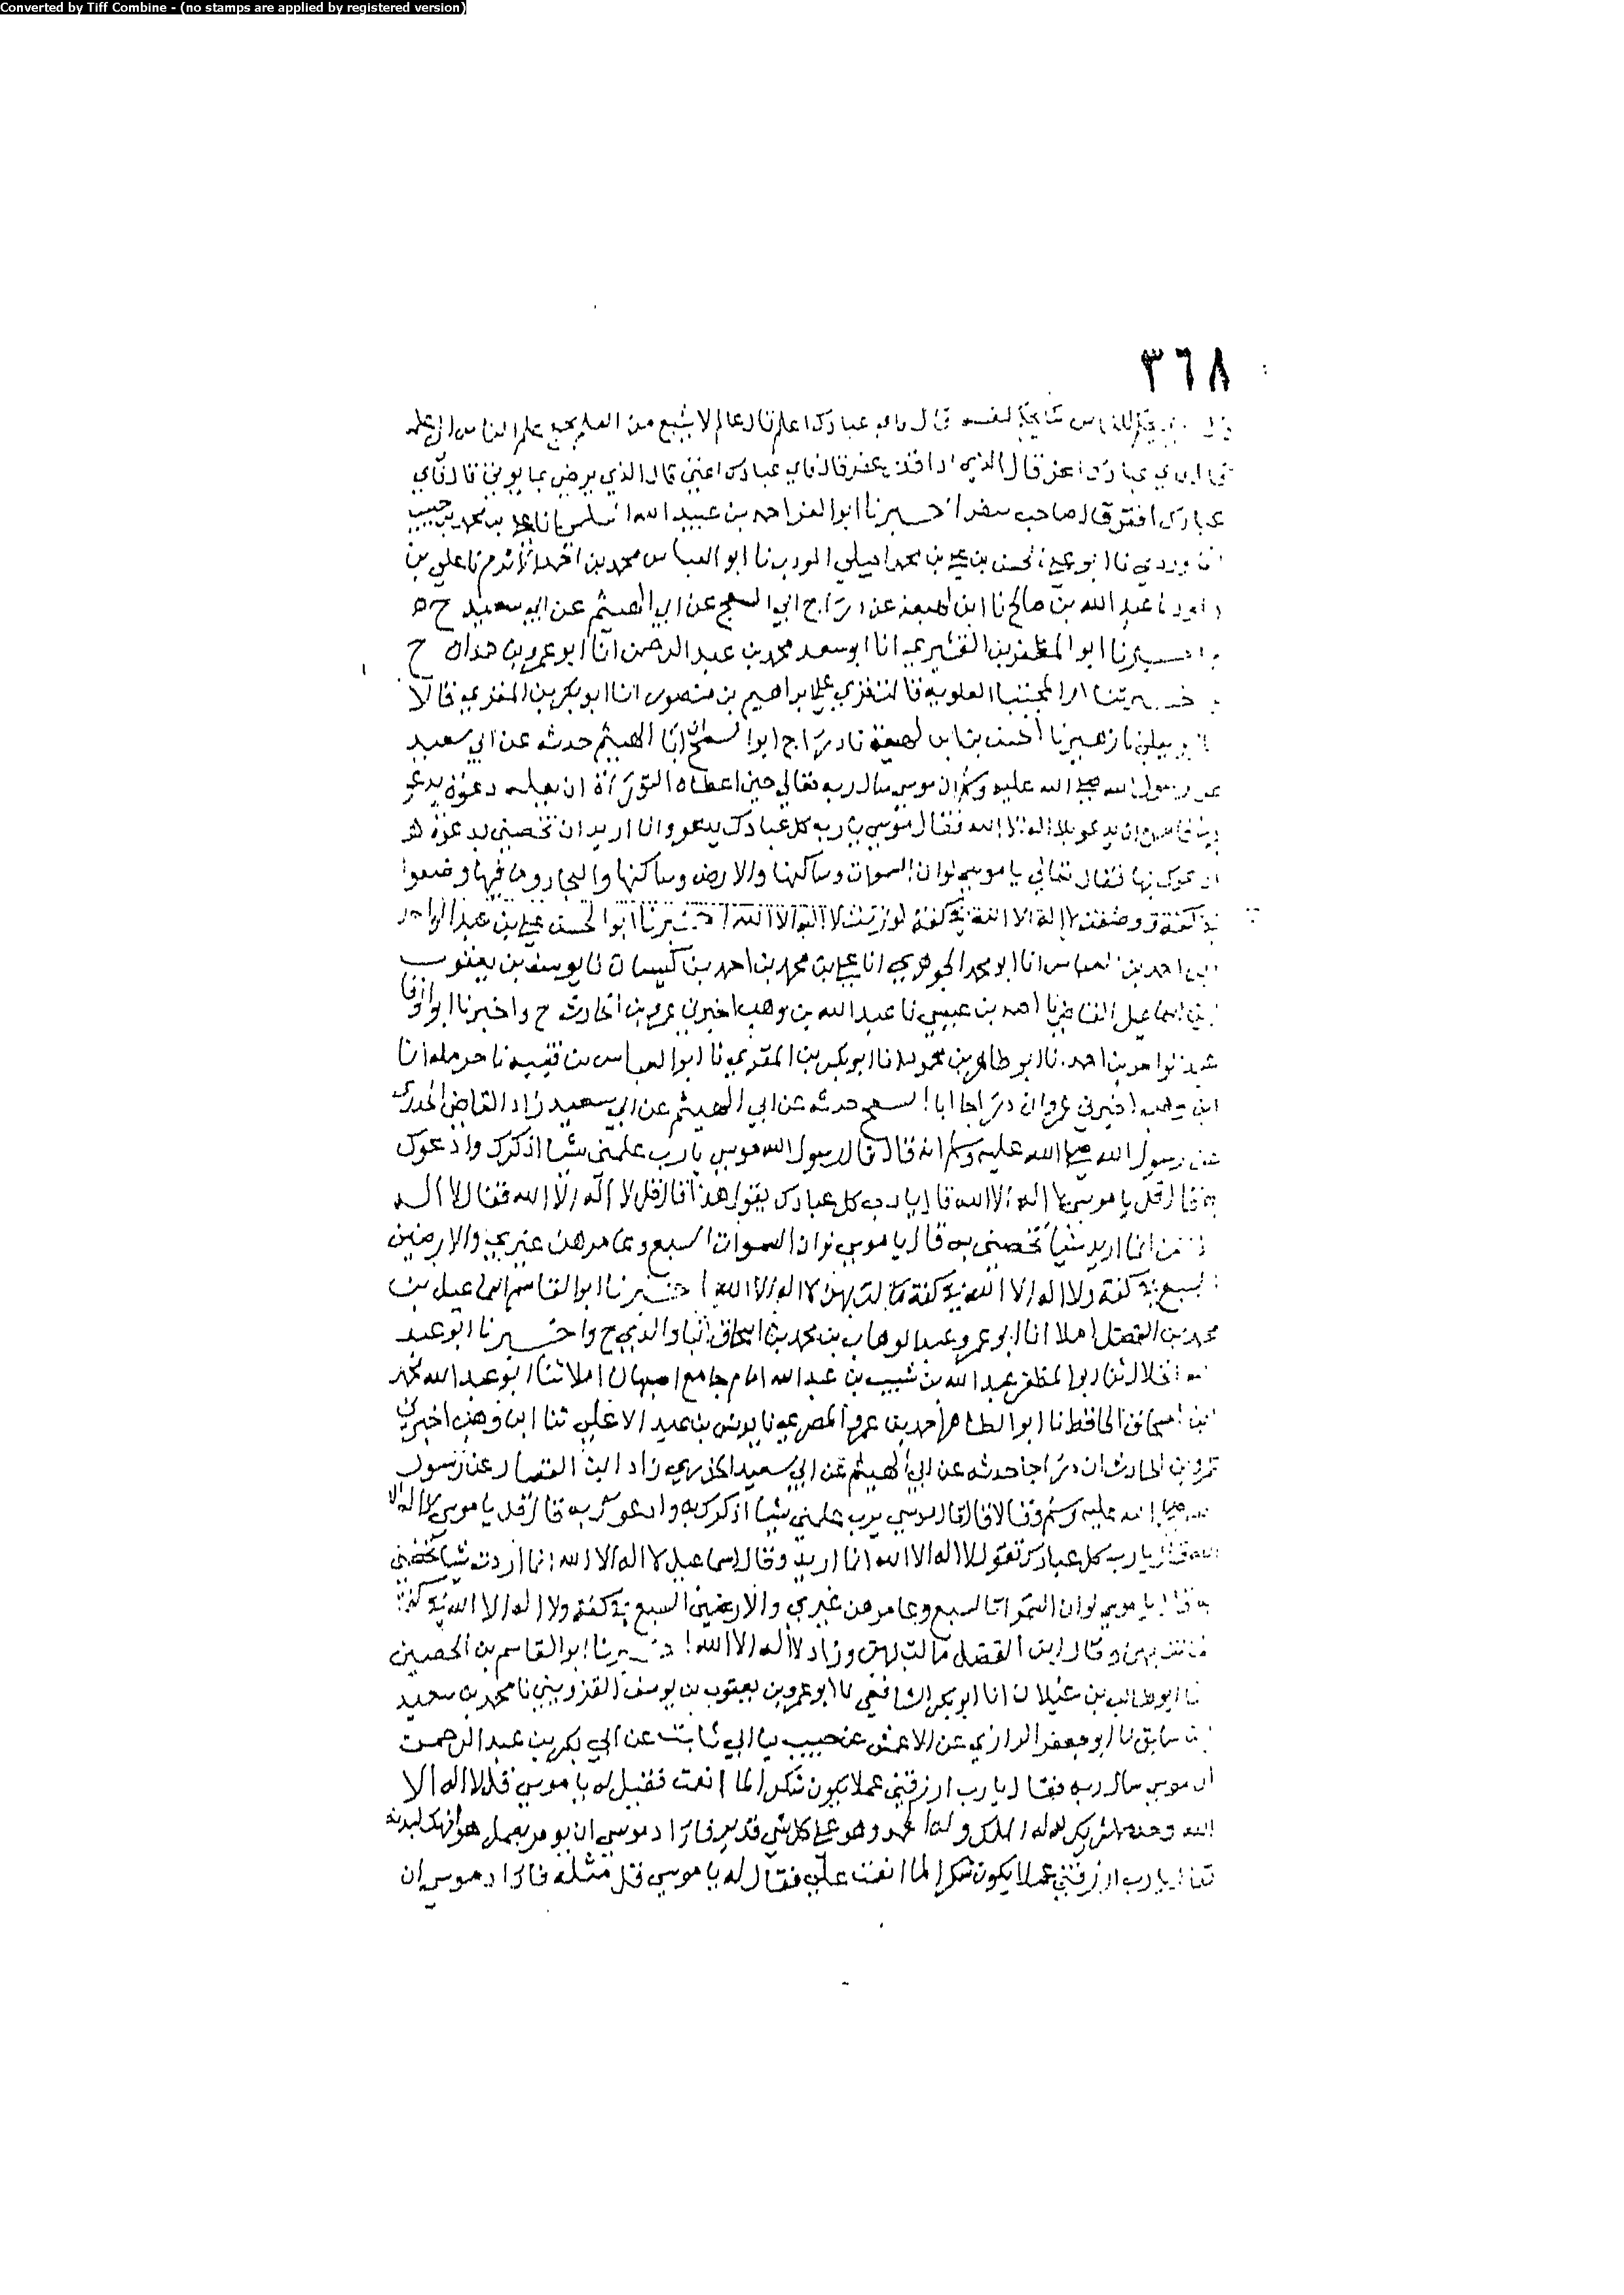 Converted by Tiff Combine - (no stamps are applied by registered version)
٣٦٨
للناس كما يحكم لنفسه قال فاي عبادك اعلم قال عالم لا يشبع من العلم يجمع علم الناس الى علمه
عبادك اعز قال الذي اذا قدر غفر قال فاي عبادك اغنى قال الذي يرضى بما يوتى قال فاي
عبادك افقر قال صاحب سفر اخبرنا ابو العز احمد بن عبيد الله السلمي انا محمد بن
نا ابو علي الحسن بن علي بن محمد نا ابو العباس محمد بن احمد الاثرم نا علي بن
داود نا عبد الله بن صالح نا ابن لهيعة عن دراج ابي السمح عن ابي الهيثم عن ابي سعيد ح
اخبرنا ابو المظفر بن القشيري انا ابو سعد محمد بن عبد الرحمن انا ابو عمرو بن حمدان ح
واخبرتنا ام المجتبا العلوية قالت قري على ابراهيم بن منصور انا ابو بكر بن المقري قالا
انا ابو يعلى نا زهير نا لهيعة نا دراج ابو السمح ان ابا الهيثم حدثه عن ابي سعيد
عن رسول الله صلى الله عليه وسلم ان موسى سال ربه تعالى حين اعطاه التوراة ان يعلمه دعوة يدعو
بها ان يدعو بلا اله الا الله فقال موسى يارب كل عبادك يدعو وانا اريد ان تخصني بدعوة
ادعوك بها فقال تعالى يا موسى لو ان السموات وساكنها والارض وساكنها والبحار وما فيها وضعوا
في كفة ووضعت لا اله الا الله في كفة لوزنت لا اله الا الله اخبرنا ابو الحسن علي بن عبد الواحد
ابن احمد بن العباس انا ابو محمد الجوهري انا علي بن محمد بن احمد بن كيسان نا يوسف بن يعقوب
بن اسماعيل القاضي نا احمد بن عيسى نا عبد الله بن وهب اخبرني عمرو بن الحارث ح واخبرنا ابو الوفا
عبد الواحد بن احمد نا ابو طاهر بن محمود نا ابو بكر بن المقري نا ابو العباس بن قتيبة نا حرملة انا
ابن وهب اخبرني عمرو ان دراجا ابا السمح حدثه عن ابي الهيثم عن ابي سعيد زاد القاضي الخدري
عن رسول الله صلى الله عليه وسلم انه قال قال رسول الله موسى يا رب علمني شيا اذكرك وادعوك
به قال قل يا موسى لا اله الا الله قال يا رب كل عبادك يقول هذا قال قل لا اله الا الله فقال لا اله
انما اريد شيا تخصني به قال يا موسى لو ان السموات السبع وعامرهن غيري والارضين
السبع في كفة ولا اله الا الله في كفة مالت بهن لا اله الا الله اخبرنا ابو القاسم اسماعيل بن
محمد بن الفضل املا انا ابو عمرو عبد الوهاب بن محمد بن اسحاق انبا والدي ح واخبرنا ابو عبد
الله الخلال ثنا ابو المظفر عبد الله بن شبيب بن عبد الله امام جامع اصبهان املا ثنا ابو عبد الله محمد
ابن اسحاق الحافظ نا ابو الطاهر احمد بن عمرو المصري نا يونس بن عبد الاعلى ثنا ابن وهب اخبرني
عمرو بن الحارث ان دراجا حدثه عن ابي الهيثم عن ابي سعيد الخدري زاد ابن الفضل عن رسول
الله صلى الله عليه وسلم وقالا قال قال موسى يرب علمني شيا اذكرك به وادعوك به قال قل يا موسى لا اله الا
الله قال يارب كل عبادك تقول لا اله الا الله انا اريد وقال اسماعيل لا اله الا الله انما اردت شيا تخصني
به قال يا موسى لو ان السموات السبع وعامرهن غيري والارضين السبع في كفة ولا اله الا الله في كفة
مالت بهن وقال ابن الفضل مالت بهن وزاد لا اله الا الله اخبرنا ابو القاسم بن الحصين
نا ابو طالب بن غيلان انا ابو بكر الشافعي نا ابو عمرو بن يعقوب بن يوسف القزويني نا محمد بن سعيد
بن سابق نا ابو جعفر الرازي عن الاعمش عن حبيب بن ابي ثابت عن ابي بكر بن عبد الرحمن
ان موسى سال ربه فقال يا رب ارزقني عملا يكون شكرا لما انعمت فقيل له يا موسى قل لا اله الا
الله وحده لا شريك له له الملك وله الحمد وهو على كل شي قدير فاراد موسى ان يومر بعمل هو انهك لبدنه
فقال يا رب ارزقني عملا يكون شكرا لما انعمت علي فقال له يا موسى قل مثله فاراد موسى ان